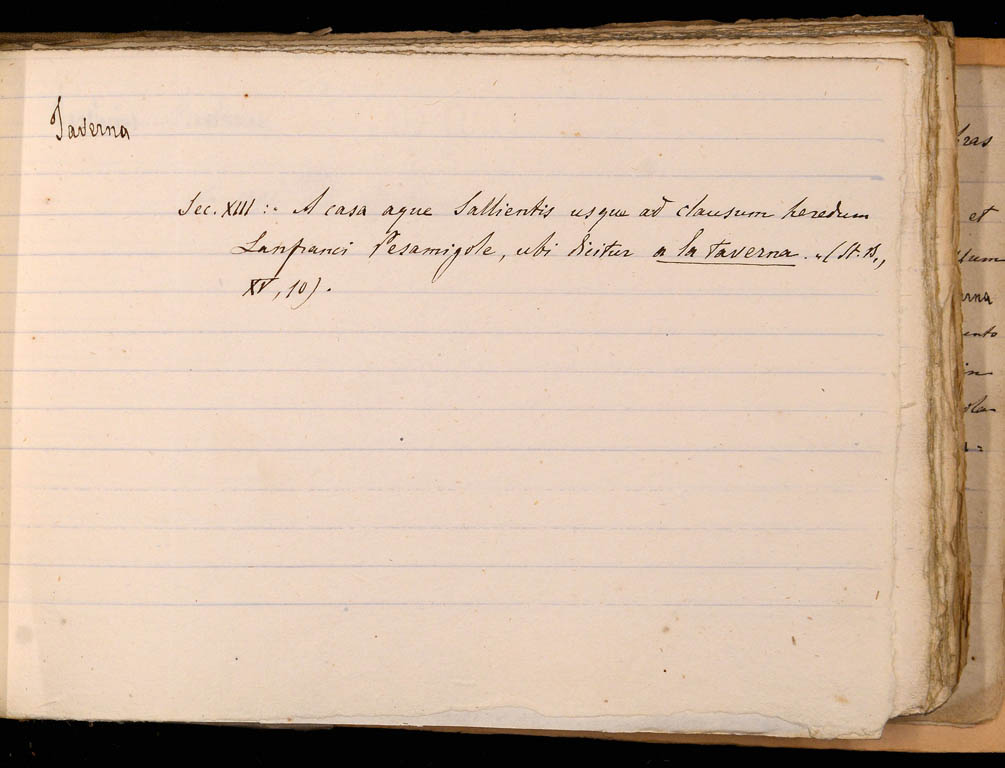 Taverna
Sec. XIII :- A casa aque Sallientis usque ad clausum heredum
Lanfranci Pesamigole, ubi dicitur a la taverna. „ (St. B.,
XV, 10).
ras
et
rna
ento
in